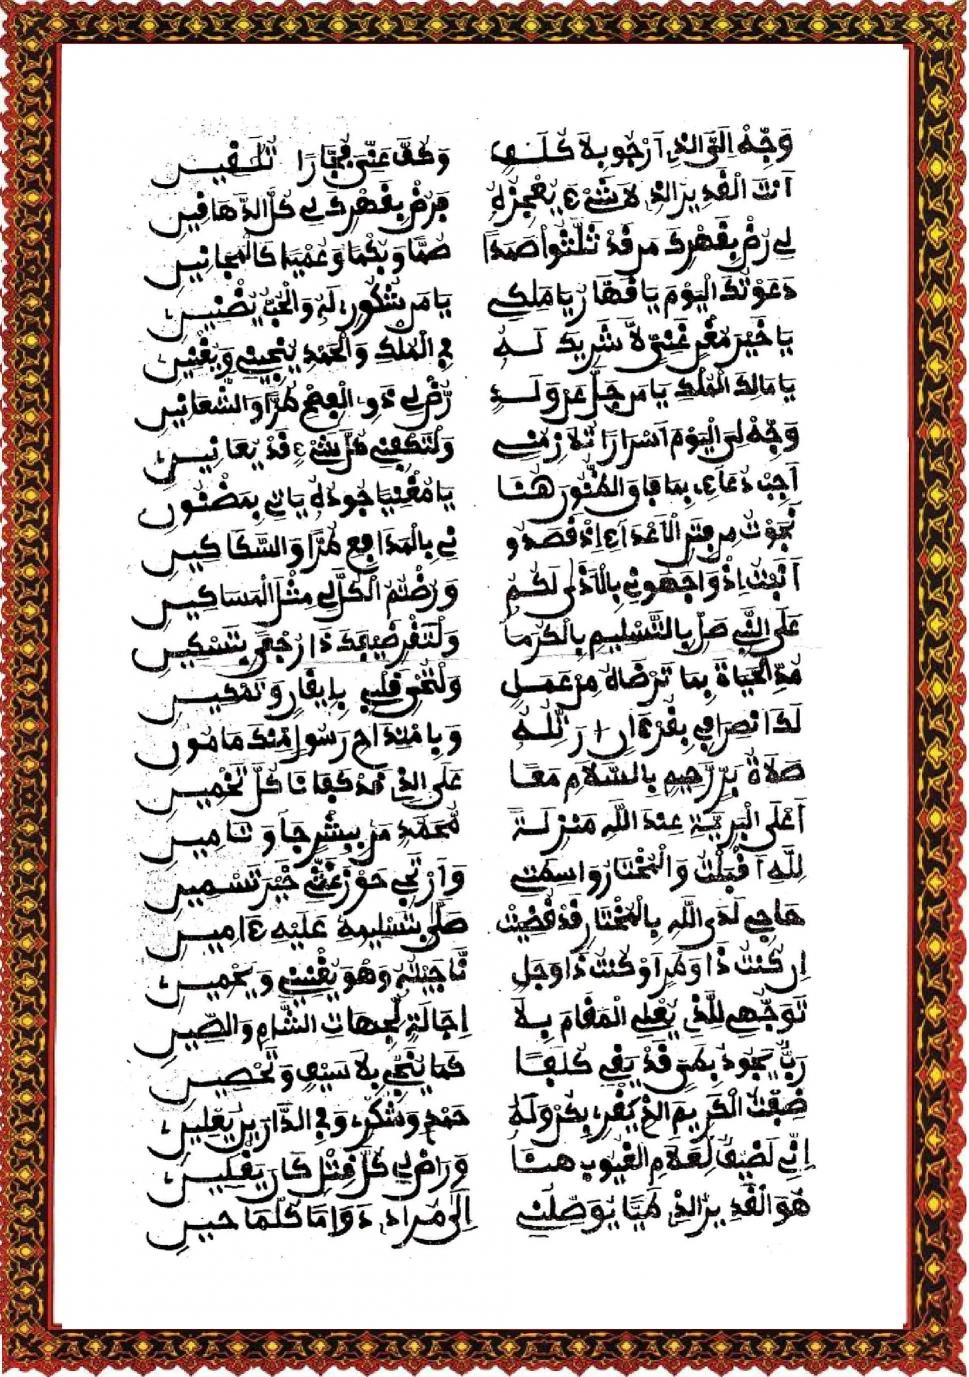 وَجِّهْ إِلَىَّ الذِي أَرْجُو بِهِ كَلَفِي وَكُفَّ عَنِّي فُجَّارًا تُلْفِينِي
أَنْتَ الْقَدِيرُ الذِي لَا شَيْءَ يُعْجِزُهُ فَرُضْ بِقَهْرِكَ لِي كُلَّ الدَّهَاقِينِ
لِي رُضْ بِقَهْرِكَ مَن قَدْ ثَلَّثُوا صَمَدًا صُمًّا وَبُكْمًا وَعُمْيًا كَالْمَجَانِينِ
دَعَوْتُكَ الْيَوْمَ يَا قَهَّارُ يَا مَلِكِي يَا مَن شُكُورِي لَهُ وَالْحُبُّ يُضْنِينِي
يَا خَيْرَ مُغْنٍ غَنِيٍّ لَا شَرِيكَ لَهُ فِي الْمُلْكِ وَالْحَمْدِ يُنْجِينِي وَيُغْنِينِي
يَا مَالِكَ الْمُلْكِ يَا مَن جَلَّ عَن وَلَدٍ رُضْ لِي ذَوِي الْعِجْمِ طُرًّا وَالشَّعَانِينِ
وَجِّهْ لِيَ الْيَوْمَ أَسْرَارًا تُلَازِمُنِي وَلْتَكْفِنِي كُلَّ شَيْءٍ قَدْ يُعَانِينِي
أَجِبْ دُعَاءِي بِمَا فَاقَ الظُّنُونَ هُنَا يَا مُغْنِيًا جُودُهُ يَاتِي بِمَضْنُونِ
نَجَوْتُ مِن فِتَنِ الْأَعْدَاءِ إِذْ قَصَدُو نِي بِالْمَدَافِعِ طُرًّا وَالسَّكَاكِينِ
أَنْتَ إِذْ وَاجَهُونِي بِالْأَذَى لَكُمُ وَرُضْتُمُ الْكُلَّ لِي مِثْلَ الْمَسَاكِينِ
عَلَى النَّبِي صَلِّ بِالتَّسْلِيمِ بِالْكُرَمَا وَلْتَفْرِ ضَيْفَكَ ذَا رُجْعَى بِتَسْكِينِ
مُدَّ الْحَيَاةَ بِمَا تَرْضَاهُ مِنْ عَمَلٍ وَلْتُحْيِ قَلْبِي بِإِيقَانٍ وَتَمْكِينِ
لَدَى انْصِرَافِي بِقُرْءَانٍ أُرَتِّلُهُ وَبِامْتِدَاحِ رَسُولٍ مِنْكَ مَامُونِ
صَلَاةُ بَرٍّ رَحِيمٍ بِالسَّلَامِ مَعًا عَلَى الذِي قَدْ كَفَانَا كُلَّ تَخْمِينِ
أَعْلَى الْبَرِيَّةِ عِنْدَ اللَّهِ مَنْزِلَةً مُحَمَّدٍ مَنْ بِبِشْرٍ جَا وَتَامِينِ
لِلَّهِ أَقْبَلْتُ وَالْمُخْتَارُ وَاسِطَتِي وَأَرْتَجِي حَوْزَ عَنِّي خَيْرَ تَسْمِينِ
حَاجِي لَدَى اللَّهِ بِالْمُخْتَارِ قَدْ قُضِيَتْ صَلَّى بِتَسْلِيمِهِ عَلَيْهِ ءَامِينِ
إِن كُنْتُ ذَا وَطَرٍ أَوْ كُنْتُ ذَا وَجَلٍ نَاجَيْتُهُ وَهْوَ يُغْنِينِي وَيَحْمِينِي
تَوَجُّهِي لِلَّذِي يُعْلِي الْمَقَامَ بِلَا إِجَالَةٍ لِجِهَاتِ الشَّامِ وَالصِّينِ
رَبٌّ يَجُودُ بِمَنٍّ قَدْ يَفِي كَلَفًا كَمَا يُنَجِّي بِلَا سَيْفٍ وَتَحْصِينِ
ضِفْتُ الْكَرِيمَ الذِي يَقْرِي بِكُنْ وَلَهُ حَمْدِي وَشُكْرِي وَفِي الدَّارَيْنِ يُعْلِينِي
إِنِّي لَضَيْفٌ لِعَلَّامِ الْغُيُوبِ هُنَا وَرَاضَ لِي كُلَّ قِتْلٍ كَانَ يَقْلِينِي
هُوَ الْقَدِيرُ الذِي طِبًّا يُوَصِّلُنِي إِلَى مُرَادِي دَوَامًا كُلَّمَا حِينِ